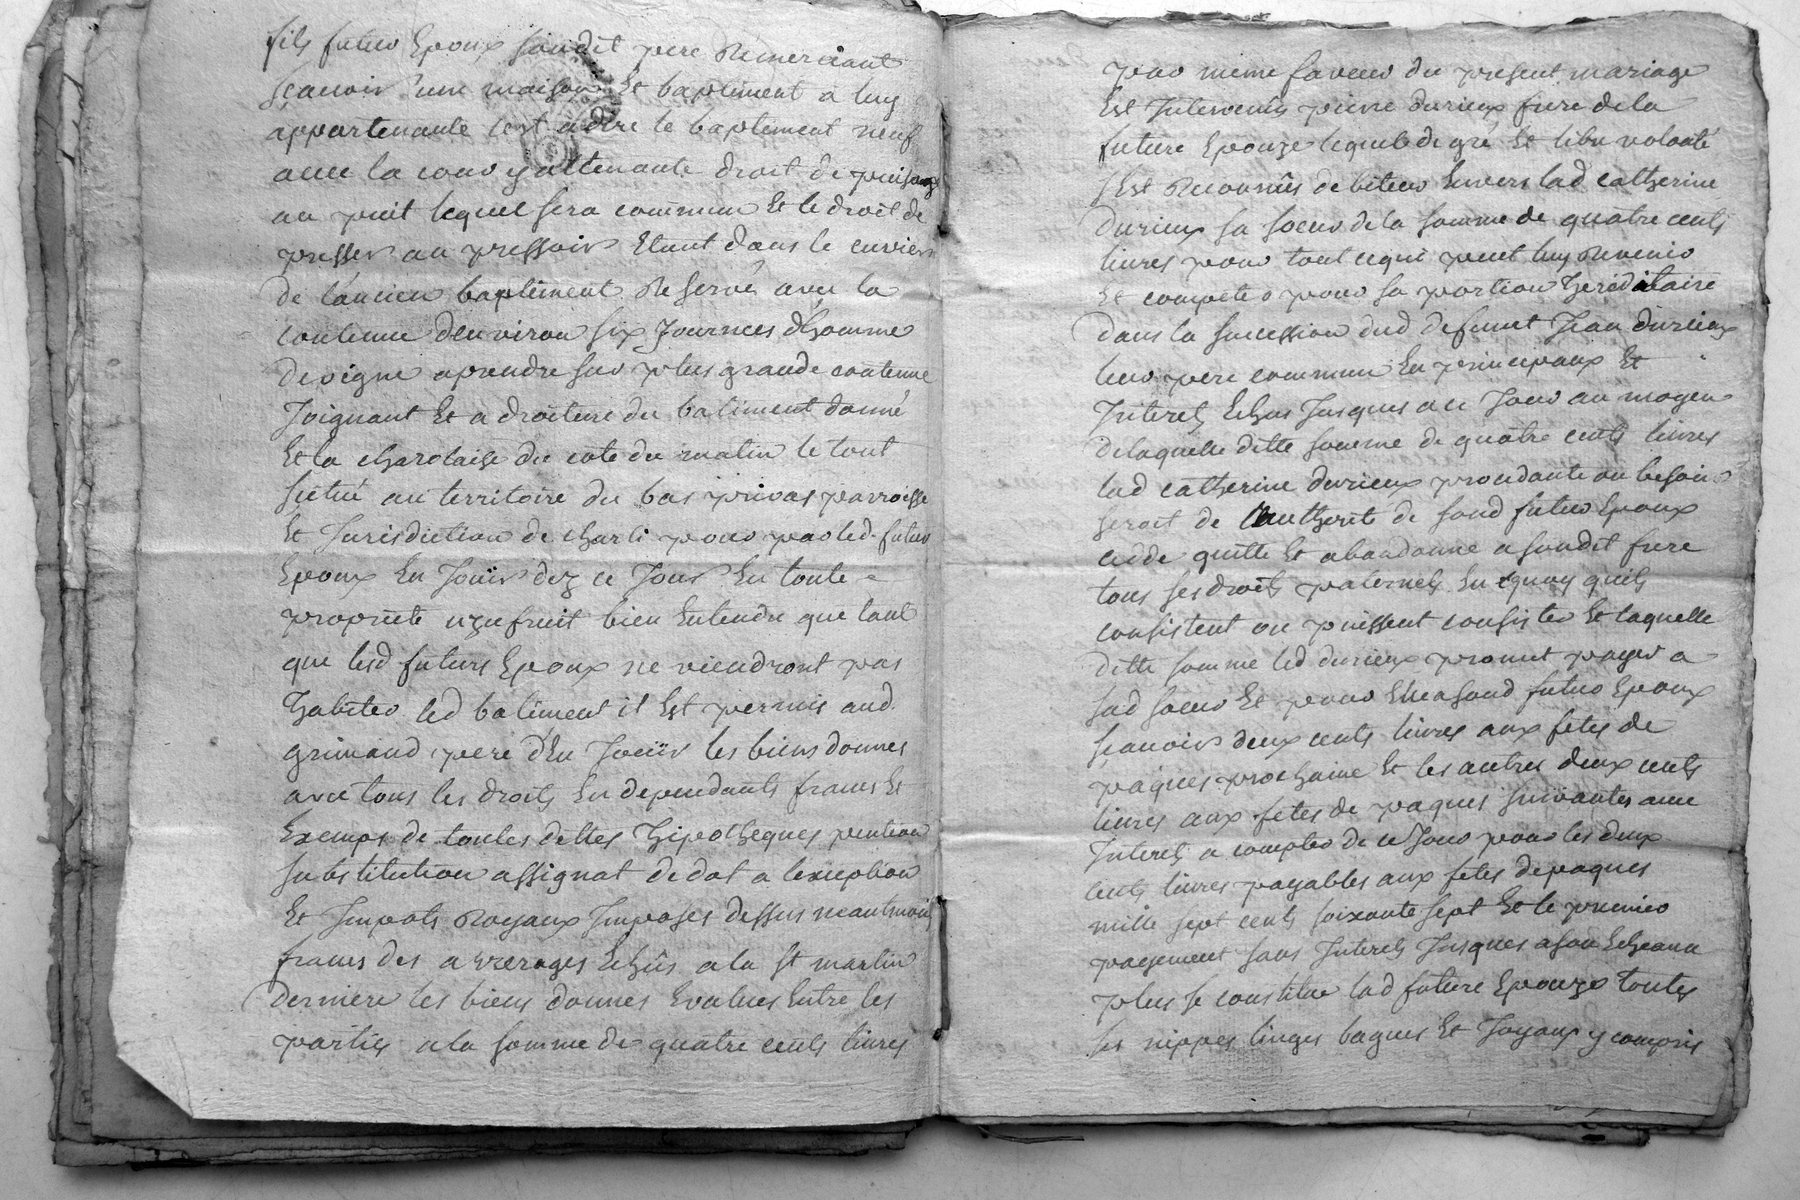 fils futur Epoux sondit pere Remerciant
sçauoir une maison Et baptiment a luy
appartenante cest a dire le baptiment neuf
auec la cour y attenante droit de puisage
au puit lequel sera commun Et le droit de
presser au pressoir Etant dans le cuvier
de l'ancien baptiment Reservé avec la
contenue denviron six Journees d'homme
de vigne a prendre sur plus grande contenue
Joignant Et a droiture du batiment donné
Et la du coté du matin le tout
situé au territoire du bas privas parroisse
Et Jurisdiction de charli pour par led. futur
Epoux En Jouir dez ce Jour En toute
proprieté uzufruit bien Entendu que tant
que lesd futurs Epoux ne viendront pas
habiter led batiment il Est permis aud.
grimand pere d'En Jouïr les biens donnes
avec tous les droits En dependants francs Et
Exemps de toutes dettes hipotheques pention
substitution assignat de dot a lexception
Et Impots Royaux Imposes dessus neantmoins
francs des arrerages Echûs a la st martin
derniere les biens donnes Evalues Entre les
parties a la somme de quatre cents livres
pour meme faveur du present mariage
Est Intervenu pierre durieux frere de la
future Epouze lequel de gré Et libre volonté
sest Reconnûs debiteur Envers lad catherine
durieux sa soeur de la somme de quatre cents
livres pour tout ce qui peut luy Revenir
Et competer pour sa portion hereditaire
dans la sucession dud defunt Jean durieux
leur pere commun En principaux Et
Interets Echus Jusques a ce Jour au moyen
de laquelle ditte somme de quatre cents livres
lad catherine durieux procedante ou besoin
seroit de l'authorité de sond futur Epoux
cedde quitte Et abandonne a sondit frere
tous ses droits paternels En quoy quils
consistent ou puissent consister Et laquelle
ditte somme led durieux promet payer a
sad soeur Et pour Elle a sond futur Epoux
sçauoir deux cents livres aux fetes de
paques prochaine Et les autres deux cents
livres aux fetes de paques suivantes avec
Interets a compter de ce Jour pour les deux
cents livres payables aux fetes de paques
mille sept cents soixante sept Et le premier
payement sans Interets Jusques a son Echeance
plus se constitue lad future Epouze toutes
ses nippes linges bagues Et Joyaux y compris